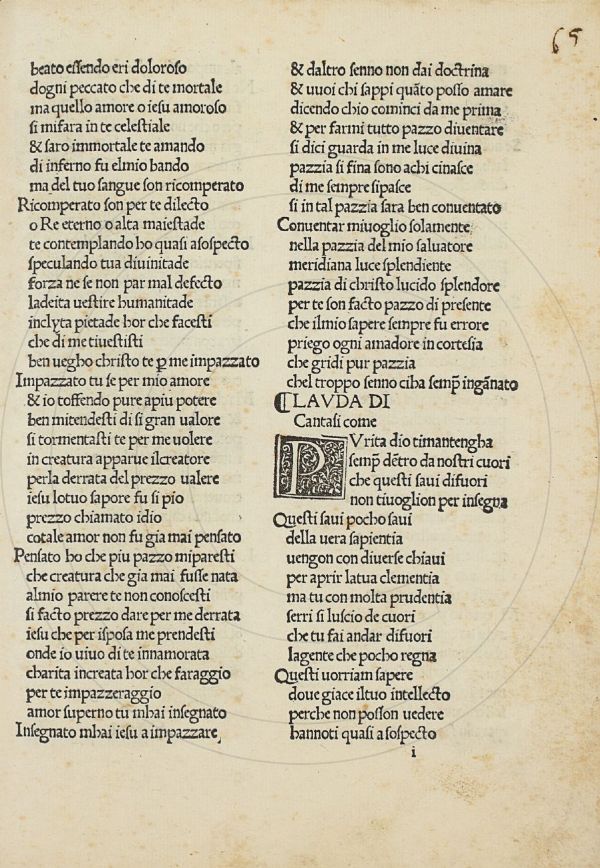 65
beato essendo eri doloroso
dogni peccato che di te mortale
ma quello amore o iesu amoroso
si mifara in te celestiale
& saro immortale te amando
di inferno fu elmio bando
ma del tuo sangue son ricomperato
Ricomperato son per te dilecto
o Re eterno o alta maiestade
te contemplando ho quasi asospecto
speculando tua diuinitade
forza ne se non par mal defecto
ladeita uestire humanitade
inclyta pietade hor che facesti
che di me tiuestisti
ben uegho christo te ꝑ me impazzato
Impazzato tu se per mio amore
& io toffendo pure apiu potere
ben mitendesti di si gran ualore
si tormentasti te per me uolere
in creatura apparue ilcreatore
perla derrata del prezzo ualere
iesu lotuo sapore fu si pio
prezzo chiamato idio
cotale amor non fu gia mai pensato
Pensato ho che piu pazzo miparesti
che creatura che gia mai fusse nata
almio parere te non conoscesti
si facto prezzo dare per me derrata
iesu che per isposa me prendesti
onde io uiuo di te innamorata
charita increata hor che faraggio
per te impazzeraggio
amor superno tu mhai insegnato
Insegnato mhai iesu a impazzare
& daltro senno non dai doctrina
& uuoi chi sappi quãto posso amare
dicendo chio cominci da me prima
& per farmi tutto pazzo diuentare
si dici guarda in me luce diuina
pazzia si fina sono achi cinasce
di me sempre sipasce
si in tal pazzia sara ben conuentato
Conuentar miuoglio solamente
nella pazzia del mio saluatore
meridiana luce splendiente
pazzia di christo lucido splendore
per te son facto pazzo di presente
che ilmio sapere sempre fu errore
priego ogni amadore in cortesia
che gridi pur pazzia
chel troppo senno ciha semp̃ ingãnato
¶LAVDA DI
Cantasi come
PVrita dio timantengha
semp̃ dẽtro da nostri cuori
che questi saui difuori
non tiuoglion per insegna
Questi saui pocho saui
della uera sapientia
uengon con diuerse chiaui
per aprir latua clementia
ma tu con molta prudentia
serri si luscio de cuori
che tu fai andar difuori
lagente che pocho regna
Questi uorriam sapere
doue giace iltuo intellecto
perche non posson uedere
hannoti quasi a sospecto
i